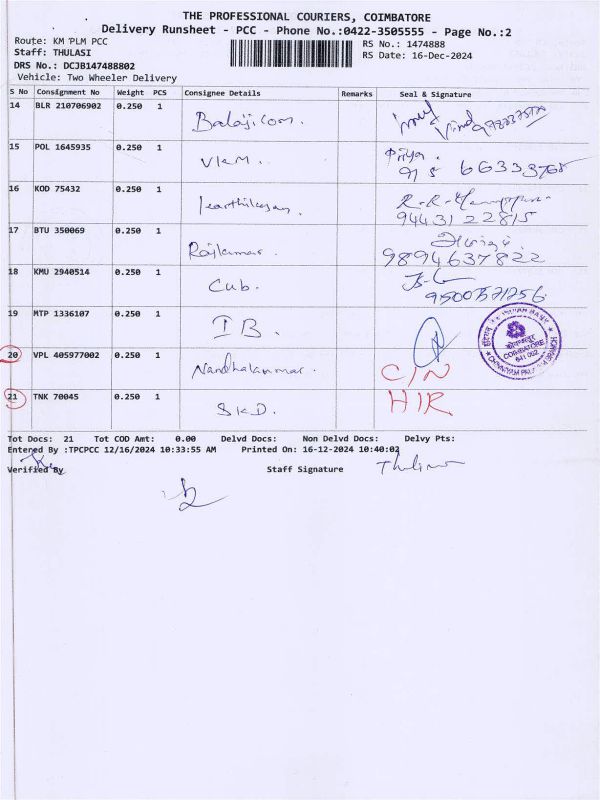 THE PROFESSIONAL COURIERS, COIMBATORE
Delivery Runsheet - PCC - Phone No.:0422-3505555 - Page No.:2
Route: KM PLM PCC
RS No.: 1474888
Staff: THULASI
RS Date: 16-Dec-2024
DRS No.: DCJB147488802
Vehicle: Two Wheeler Delivery
S No Consignment No Weight PCS Consignee Details Remarks Seal & Signature
14 BLR 210706902 0.250 1 Balajicom.
15 POL 1645935 0.250 1 VKM. பிரியா.
16 KOD 75432 0.250 1 Karthikeyan,
9443122815
17 BTU 350069 0.250 1 Rajkumar.
9894637822
18 KMU 2940514 0.250 1 Cub.
19 MTP 1336107 0.250 1 IB.
COIMBATORE
641 002
20 VPL 405977002 0.250 1 Nandhakumar. C/N
21 TNK 70045 0.250 1 SKD. HIR
Tot Docs: 21 Tot COD Amt: 0.00 Delvd Docs: Non Delvd Docs: Delvy Pts:
Entered By :TPCPCC 12/16/2024 10:33:55 AM Printed On: 16-12-2024 10:40:02
Verified By Staff Signature